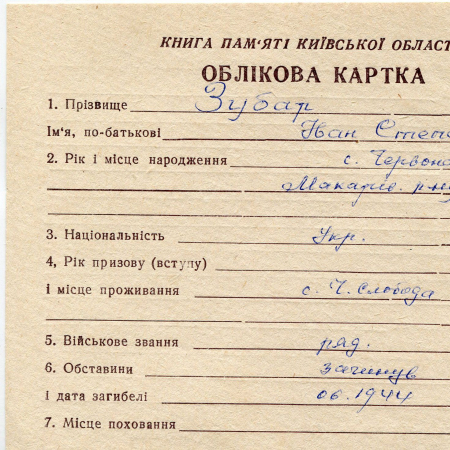 КНИГА ПАМ'ЯТІ КИЇВСЬКОЇ ОБЛАСТ
ОБЛІКОВА КАРТКА
1. Прізвище Зубар
Ім'я, по-батькові Іван Степа
2. Рік і місце народження с. Червоно
Макарів. р-ну
3. Національність Укр.
4, Рік призову (вступу)
і місце проживання с. Ч. Слобода
5. Військове звання ряд.
6. Обставини загинув
і дата загибелі 06.1944
7. Місце поховання